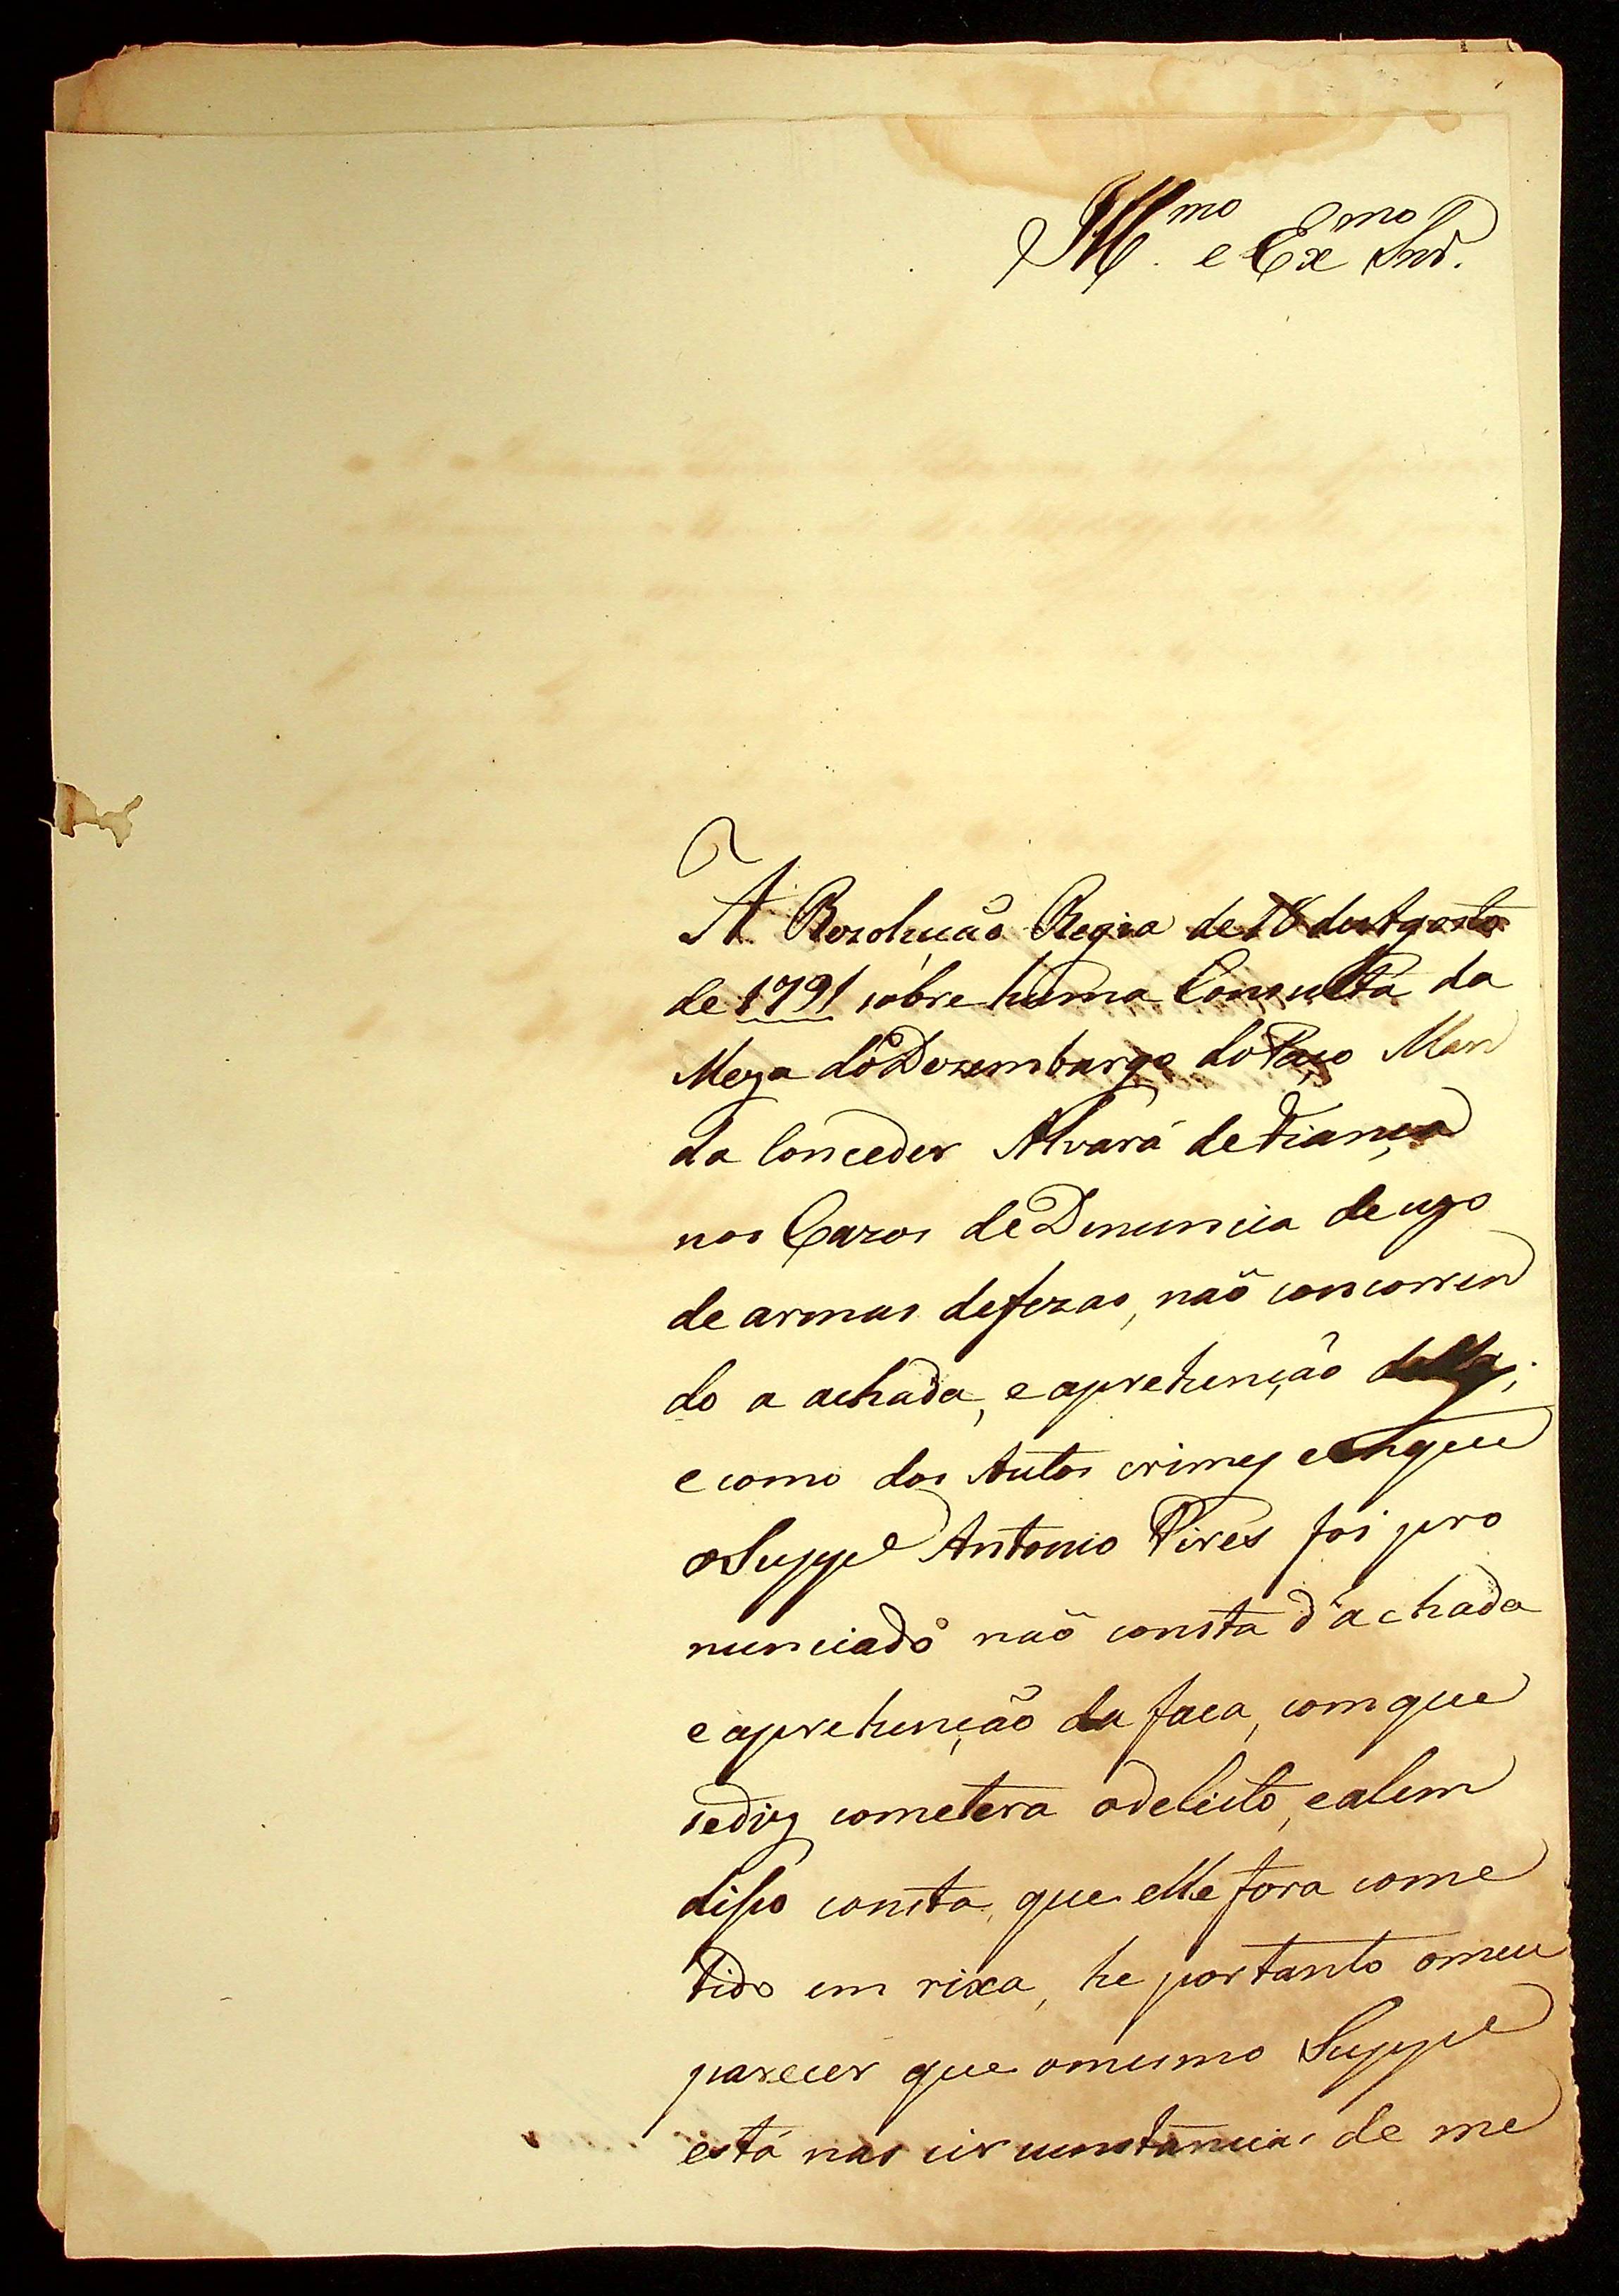 Ill.mo e Ex.mo Snr.
A Rezolução Regia de 18 de Agosto
de 1791 sobre huma Consulta da
Meza do Dezembargo do Paço Man
da Conceder Alvará de Fiança
nos Cazos de Denuncia de uzo
de armas defezas, naõ concorren
do a achada, e aprehenção
e como dos Autos crimes em que
o Supp.e Antonio Pires foi pro
nunciado naõ consta d'achada
e aprehenção da faca, com que
se diz cometera o delicto, e alem
disso consta, que elle fora come
tido em rixa, he portanto o meu
parecer que o mesmo Supp.e
está nas circunstancias de me